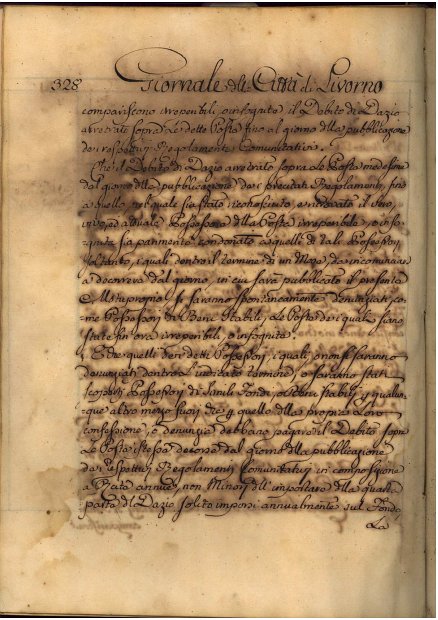 328 Giornale della Città di Livorno
compariscono irreperibili, o incognite il Debito di Dazio
arretrato sopra le dette Poste fino al giorno della pubblicazione
dei respettivi Regolamenti Comunitativi.
Che il Debito di Dazio arretrato sopra le Poste medesime
dal giorno della pubblicazione dei precitati Regolamenti fino
a quello nel quale sia stato riconosciuto, e
attuale Possessore della Posta irreperibile, o inco-
gnita sia parimente condonato a quelli di tali Possessori
soltanto, i quali dentro il termine di un Mese da incominciare
a decorrere dal giorno, in cui sarà pubblicato il presente
Motuproprio si saranno spontaneamente denunziati co-
me Possessori di Beni Stabili, le Poste dei quali siano
state fin ora irreperibili, o incognite.
E che quelli dei detti Possessori, i quali, o non si saranno
denunziati dentro l'indicato termine, o saranno stati
scoperti Possessori di simili Fondi, o Beni stabili p qualun-
que altro mezzo fuori che p quello della propria Loro
confessione, e denunzia debbano pagare il Debito sopra
le Poste istesse decorso dal giorno della pubblicazione
dei respettivi Regolamenti Comunitativi in
a Rate annue, non Minori dell'importare della quarta
parte del Dazio solito imporsi annualmente sul Fondo,
La